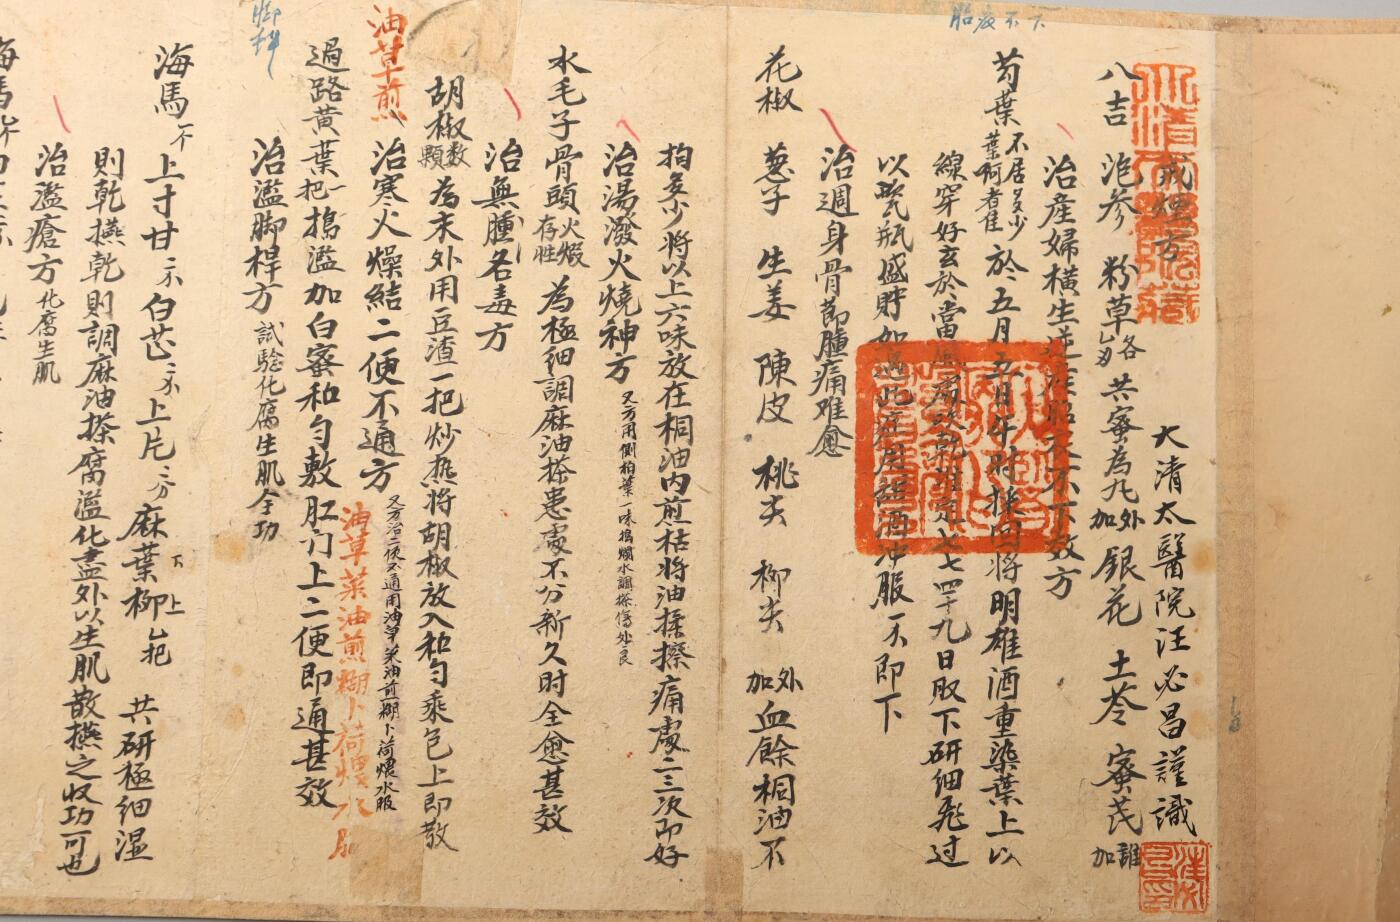 胎衣不下
戒煙方
大清太醫院汪必昌謹識
八吉 洺參 粉草 各 共蜜為丸 外加 銀花 土苓 蜜芪
治產婦橫生逆 胎衣不下效方
芶葉 不居多少 於五月五日午時採回將明雄酒重染葉上以
線穿好玄於當 乾 七七四十九日取下研細飛过
以瓷瓶盛貯如遇此症用 酒沖服一天即下
治週身骨節腫痛难愈
花椒 葱子 生姜 陳皮 桃尖 柳尖 外加 血餘桐油不
拘多少將以上六味放在桐油内煎枯將油揉擦痛處二三次即好
治湯潑火燒神方 又方用側柏葉一味搗爛水調搽傷处良
水毛子骨頭 火煅存性 為極细調麻油搽患處不分新久时全愈甚效
治無腫名毒方
胡椒 数顆 為末外用豆渣一把炒热將胡椒放入和勻乘包上即散
油草煎
治寒火燥結二便不通方 又方治二便不通用油草菜油煎糊卜荷煨水服
油草菜油煎糊卜荷煨水服
過路黃葉 一把 搗濫加白蜜和勻敷肛门上二便即通甚效
脚科
治濫脚桿方 試驗化腐生肌全功
海馬 上寸甘 白芷 上片 麻葉柳上 共研極细湿
則乾橪乾則調麻油搽腐濫化盡外以生肌散橪之收功可也
治濫瘡方 化腐生肌
海馬